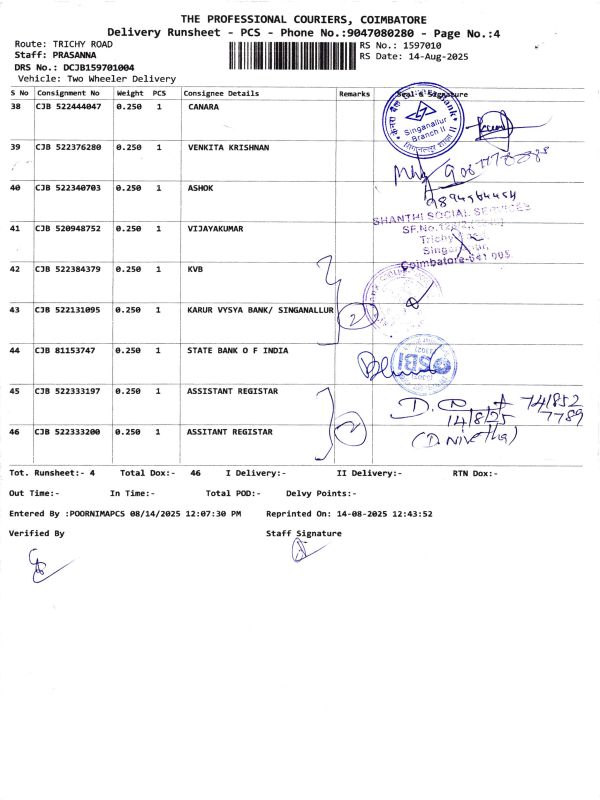 THE PROFESSIONAL COURIERS, COIMBATORE
Delivery Runsheet - PCS - Phone No.:9047080280 - Page No.:4
Route: TRICHY ROAD RS No.: 1597010
Staff: PRASANNA RS Date: 14-Aug-2025
DRS No.: DCJB159701004
Vehicle: Two Wheeler Delivery
S No Consignment No Weight PCS Consignee Details Remarks Seal & Signature
38 CJB 522444047 0.250 1 CANARA
Singanallur
Branch II
39 CJB 522376280 0.250 1 VENKITA KRISHNAN
40 CJB 522340703 0.250 1 ASHOK
SHANTHI SOCIAL SERVICES
41 CJB 520948752 0.250 1 VIJAYAKUMAR
Coimbatore-641 005.
42 CJB 522384379 0.250 1 KVB
43 CJB 522131095 0.250 1 KARUR VYSYA BANK/ SINGANALLUR 2
44 CJB 81153747 0.250 1 STATE BANK O F INDIA
SBI
45 CJB 522333197 0.250 1 ASSISTANT REGISTAR
74/852
14/8/25 7789
46 CJB 522333200 0.250 1 ASSITANT REGISTAR 2
(D. Nivetha)
Tot. Runsheet:- 4 Total Dox:- 46 I Delivery:- II Delivery:- RTN Dox:-
Out Time:- In Time:- Total POD:- Delvy Points:-
Entered By :POORNIMAPCS 08/14/2025 12:07:30 PM Reprinted On: 14-08-2025 12:43:52
Verified By Staff Signature